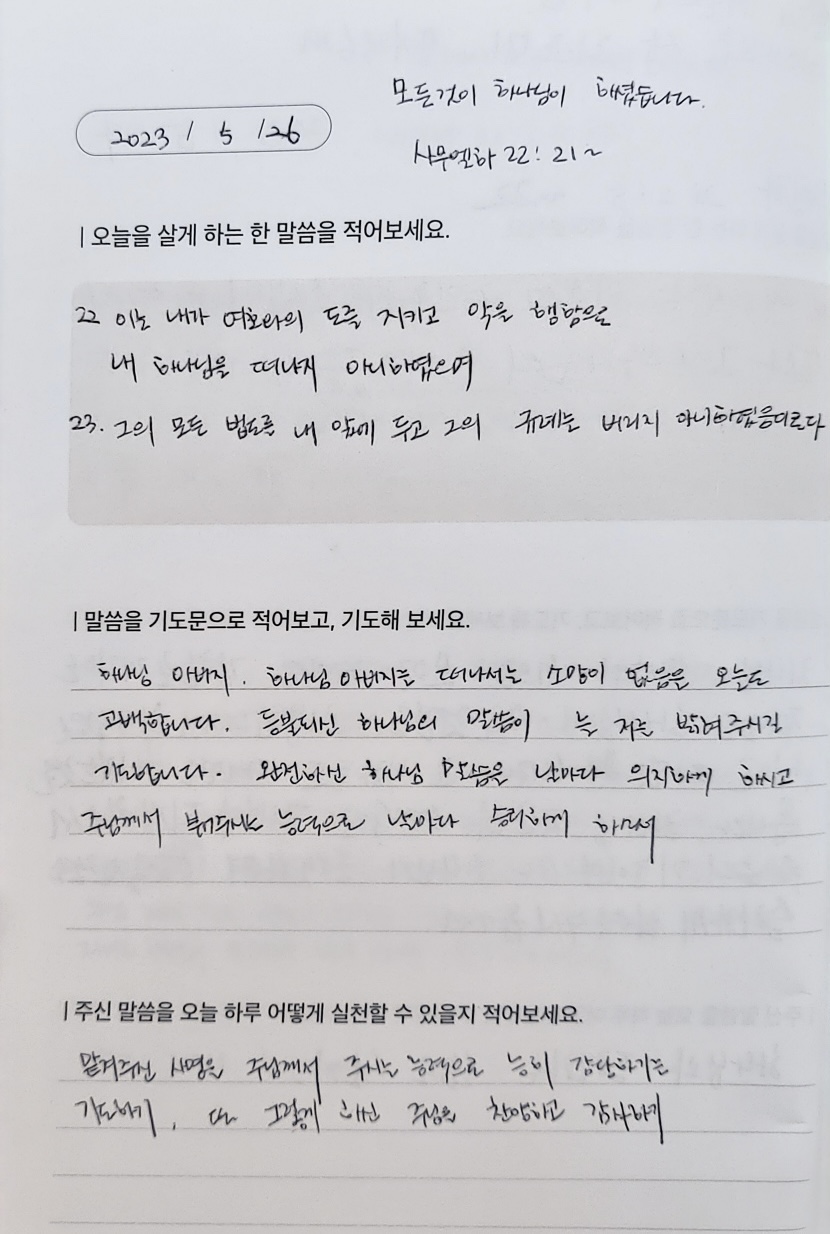 모든것이 하나님이 하셨습니다.
2023 / 5 / 26
사무엘하 22 : 21 ~
| 오늘을 살게 하는 한 말씀을 적어보세요.
22 이는 내가 여호와의 도를 지키고 악을 행함으로
내 하나님을 떠나지 아니하였으며
23. 그의 모든 법도를 내 앞에 두고 그의 규례를 버리지 아니하였음이로다
| 말씀을 기도문으로 적어보고, 기도해 보세요.
하나님 아버지. 하나님 아버지를 떠나서는 소망이 없음을 오늘도
고백합니다. 등불되신 하나님의 말씀이 늘 저를 밝혀주시길
기도합니다. 완전하신 하나님 말씀을 날마다 의지하게 하시고
주님께서 부어주시는 능력으로 날마다 승리하게 하소서
| 주신 말씀을 오늘 하루 어떻게 실천할 수 있을지 적어보세요.
맡겨주신 사명을 주님께서 주시는 능력으로 능히 감당하기를
기도하기, 또 그렇게 하신 주님을 찬양하고 감사하기